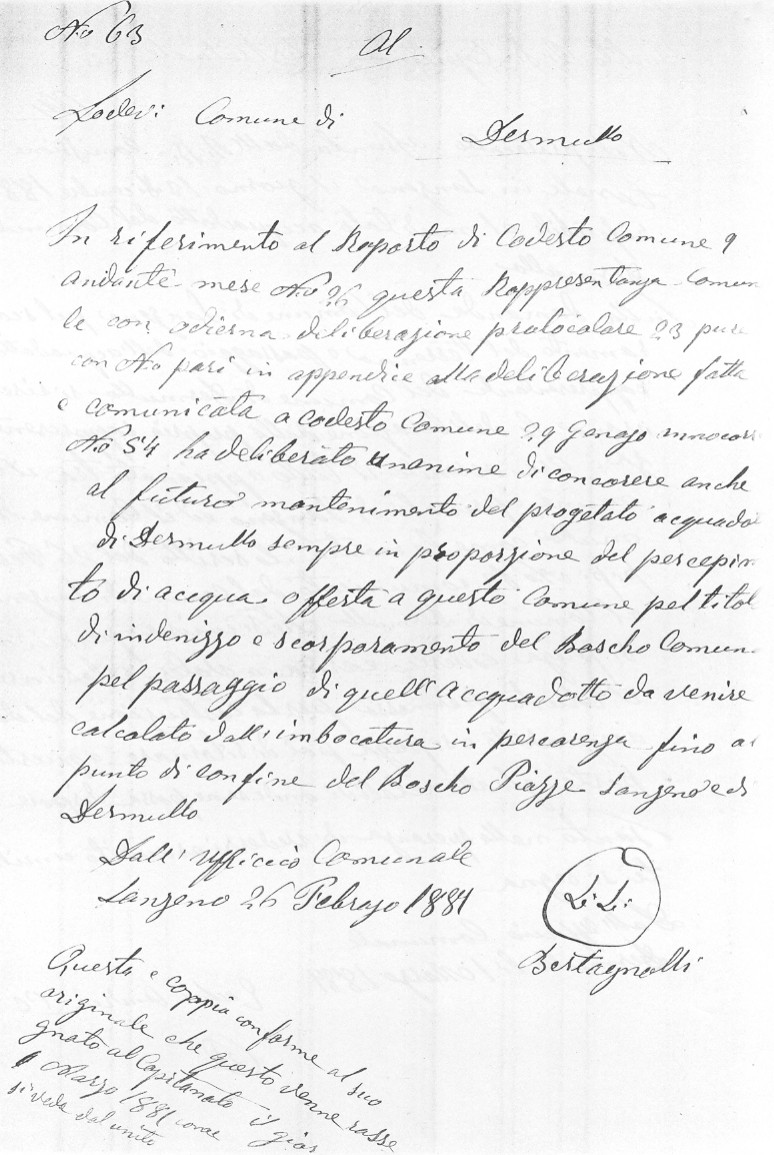 No 63
Al
Lodevi Comune di
Dermullo
In riferimento al Raporto di Codesto Comune 9
andante mese No 26 questa Rappresentanza Comun
le con odierna deliberazione protocolare 23 pure
con No pari in appendice alla deliberazione fatta
e comunicata a codesto Comune 29 Genajo innocors
No 54 ha deliberato unanime di concorere anche
al futuro mantenimento del progetato acquado
di Dermullo sempre in proporzione del percepim
to di accqua offerta a questo Comune pel titol
di indenizzo e scorporamento del Boscho Comun
pel passaggio di quell'acquadotto da venire
calcolato dall'imbocatura in percorenza fino a
punto di confine del Boscho Piazze Sanzeno e di
Dermullo
Dall' Ufficcio Comunale
Sanzeno 26 Febrajo 1881
Bertagnolli
Questa e coppia conforme al suo
originale che questo venne rasse
gnato al Capitanato il gior
1 Marzo 1881 come
si veda dal unito